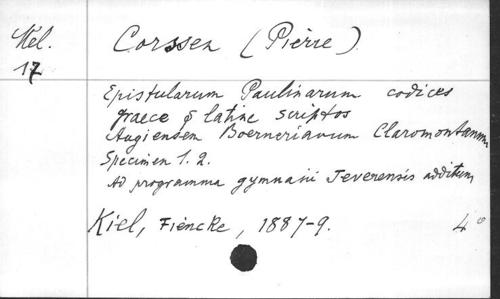 Mel. Corssen (Pierre)
17
Epistularum Paulinarum codices
graece & latine scriptos
Augiensem Boernerianum Claromontanum
Specimen 1. 2.
Ad programma gymnasii Jeverensis additum
Kiel, Fiencke, 1887-9. 4°